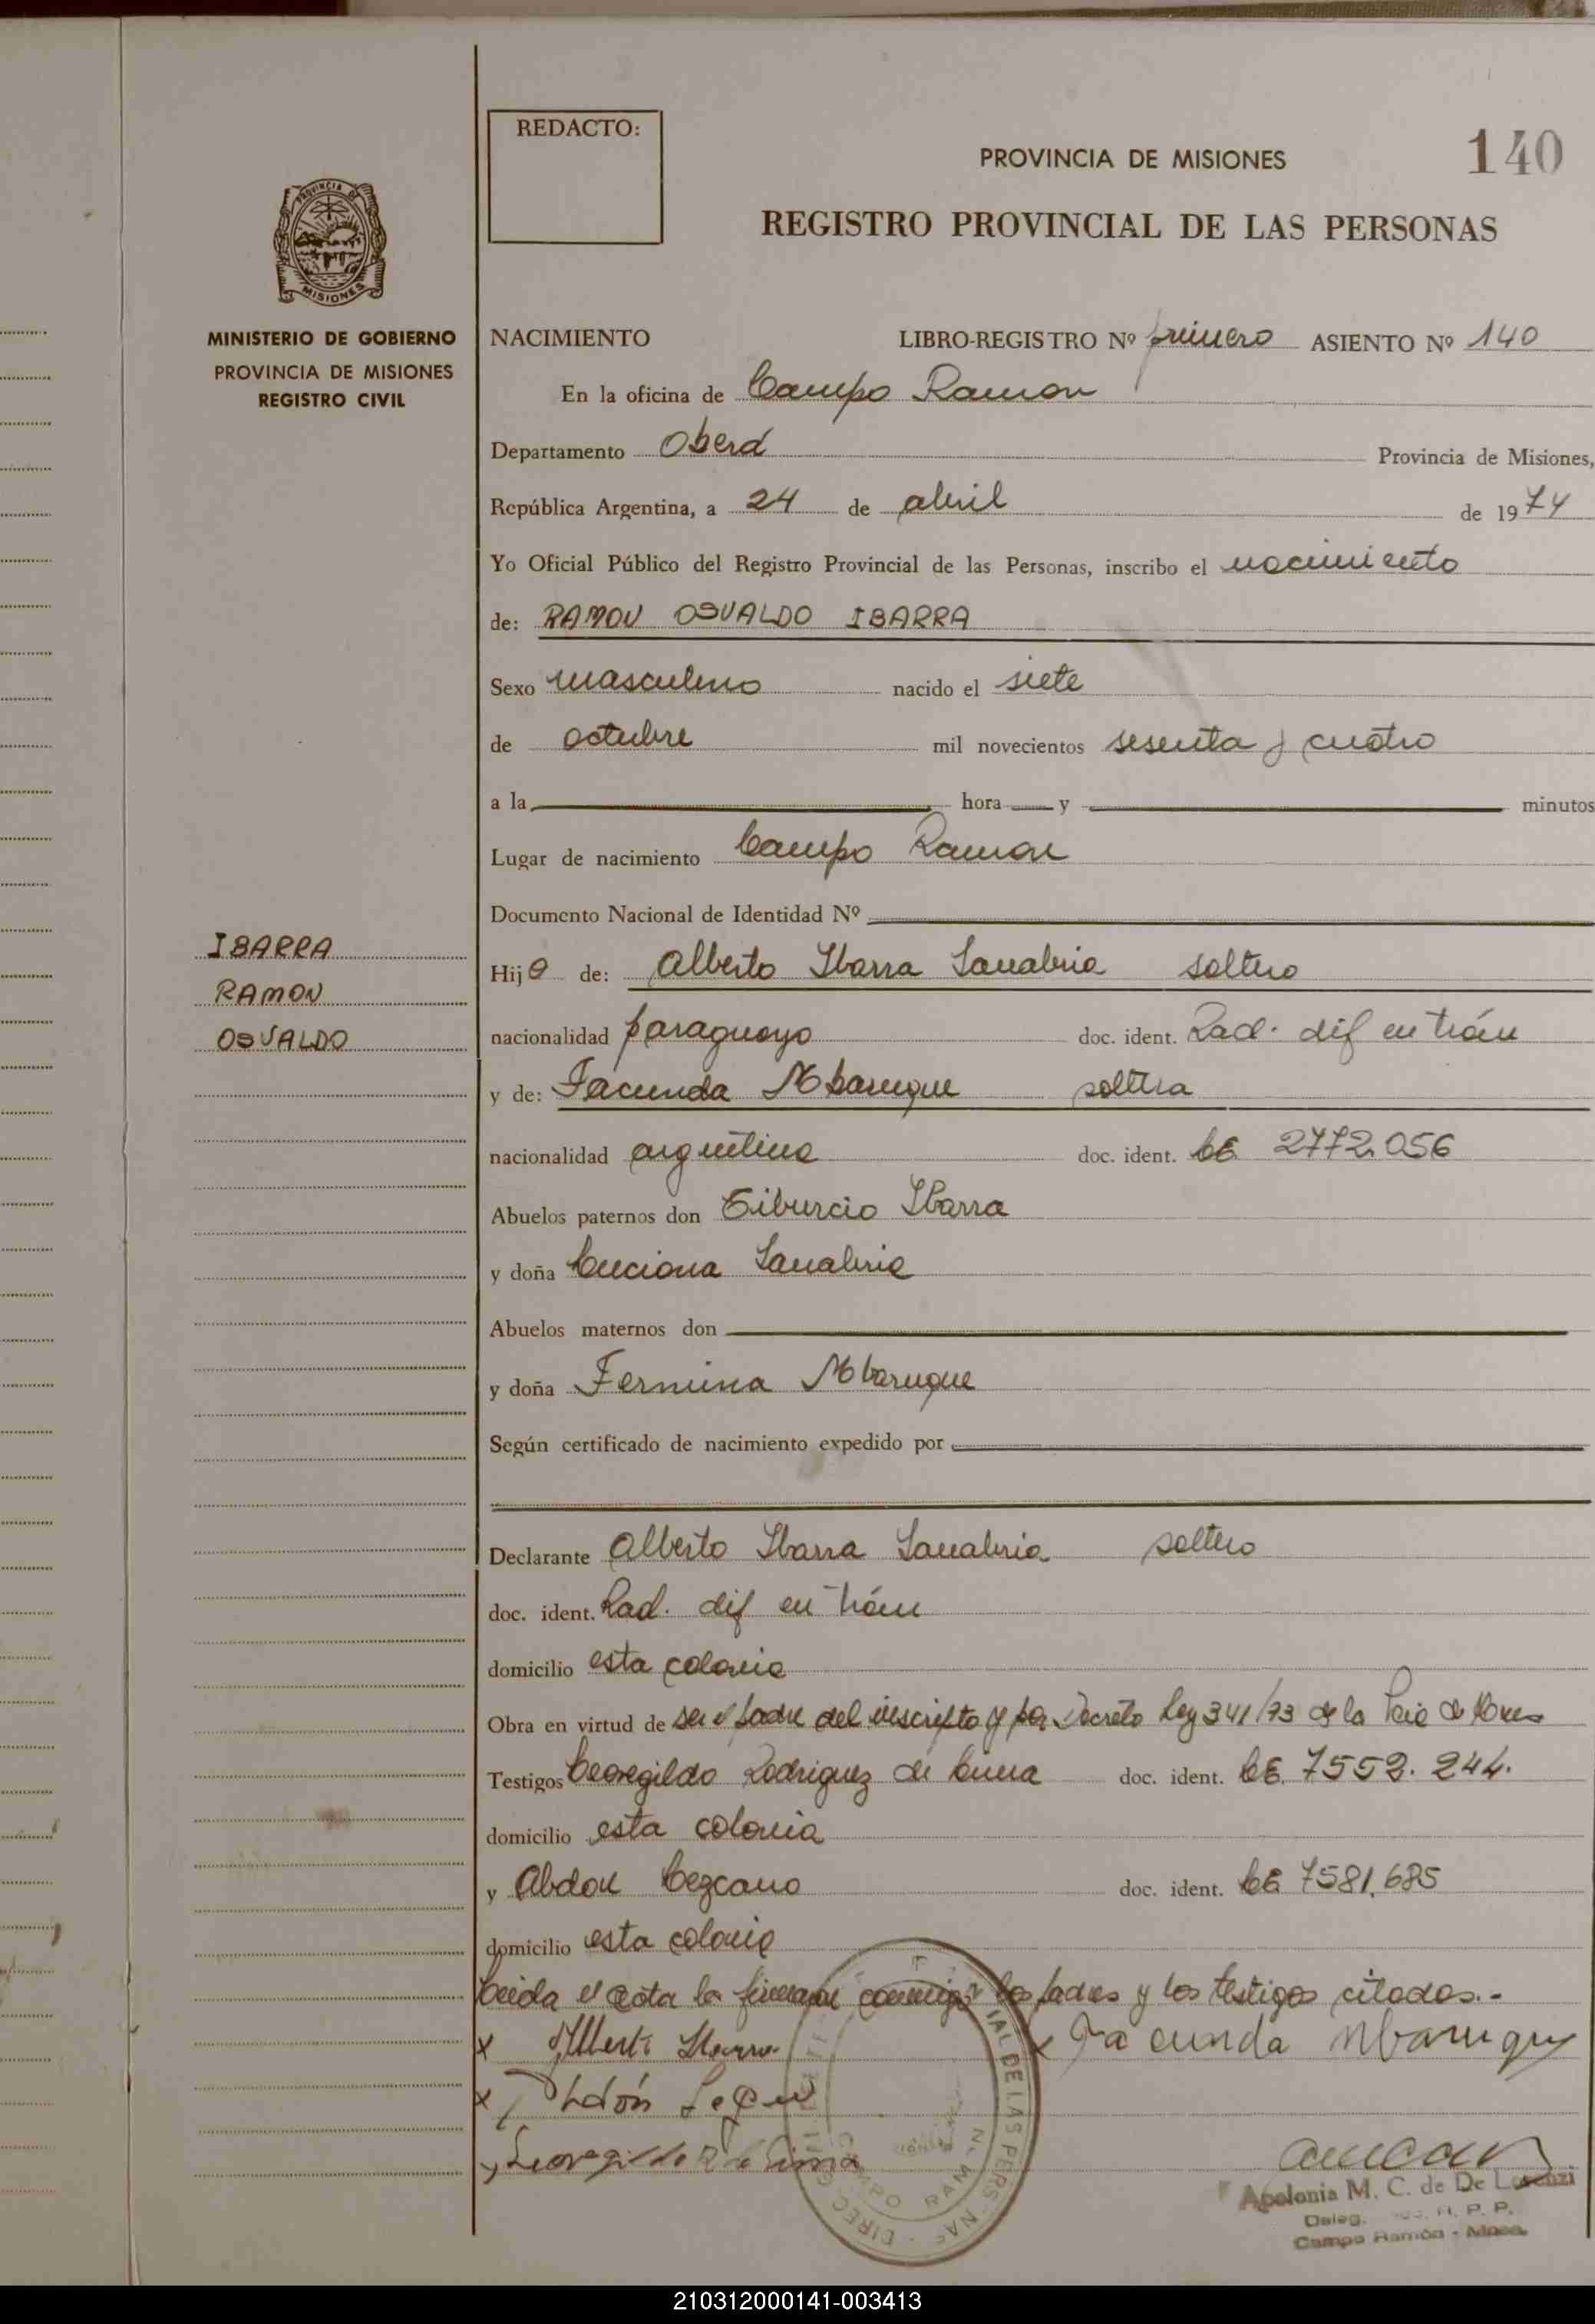 REDACTO:
PROVINCIA DE MISIONES
140
REGISTRO PROVINCIAL DE LAS PERSONAS
PROVINCIA DE
MISIONES
MINISTERIO DE GOBIERNO
PROVINCIA DE MISIONES
REGISTRO CIVIL
NACIMIENTO LIBRO-REGISTRO Nº primero ASIENTO Nº 140
En la oficina de Campo Ramon
Departamento Oberá Provincia de Misiones,
República Argentina, a 24 de abril de 1974
Yo Oficial Público del Registro Provincial de las Personas, inscribo el nacimiento
de: RAMON OSVALDO IBARRA
Sexo masculino nacido el siete
de octubre mil novecientos sesenta y cuatro
a la hora y minutos
Lugar de nacimiento Campo Ramon
Documento Nacional de Identidad Nº
IBARRA
RAMON
OSVALDO
Hijo de: Alberto Ibarra Sanabria soltero
nacionalidad paraguayo doc. ident. Rad. dif en trám
y de: Facunda Mbarugue soltera
nacionalidad argentina doc. ident. LE 2772.056
Abuelos paternos don Tiburcio Ibarra
y doña Luciona Sanabria
Abuelos maternos don
y doña Fermina Mbaruque
Según certificado de nacimiento expedido por
Declarante Alberto Ibarra Sanabria soltero
doc. ident. Rad. dif en trám
domicilio esta colonia
Obra en virtud de ser el padre del inscripto y por Decreto Ley 341/73 de la Pcia de Mnes
Testigos Leoregildo Rodriguez de Lima doc. ident. LE. 7552.244.
domicilio esta colonia
y Abdon Lezcano doc. ident. LE 7581.685
domicilio esta colonia
Leida el acta la firman conmigo los padres y los testigos citados.-
x Alberto Ibarra x Facunda Mbaruque
x Abdón
x Leoregildo R de Lima
IAL DE LAS PERSONAS - DIRECC
CAMPO RAMON
Apolonia M. C. de De Lorenzi
Deleg. R. P. P.
Campo Ramón - Mnes.
210312000141-003413